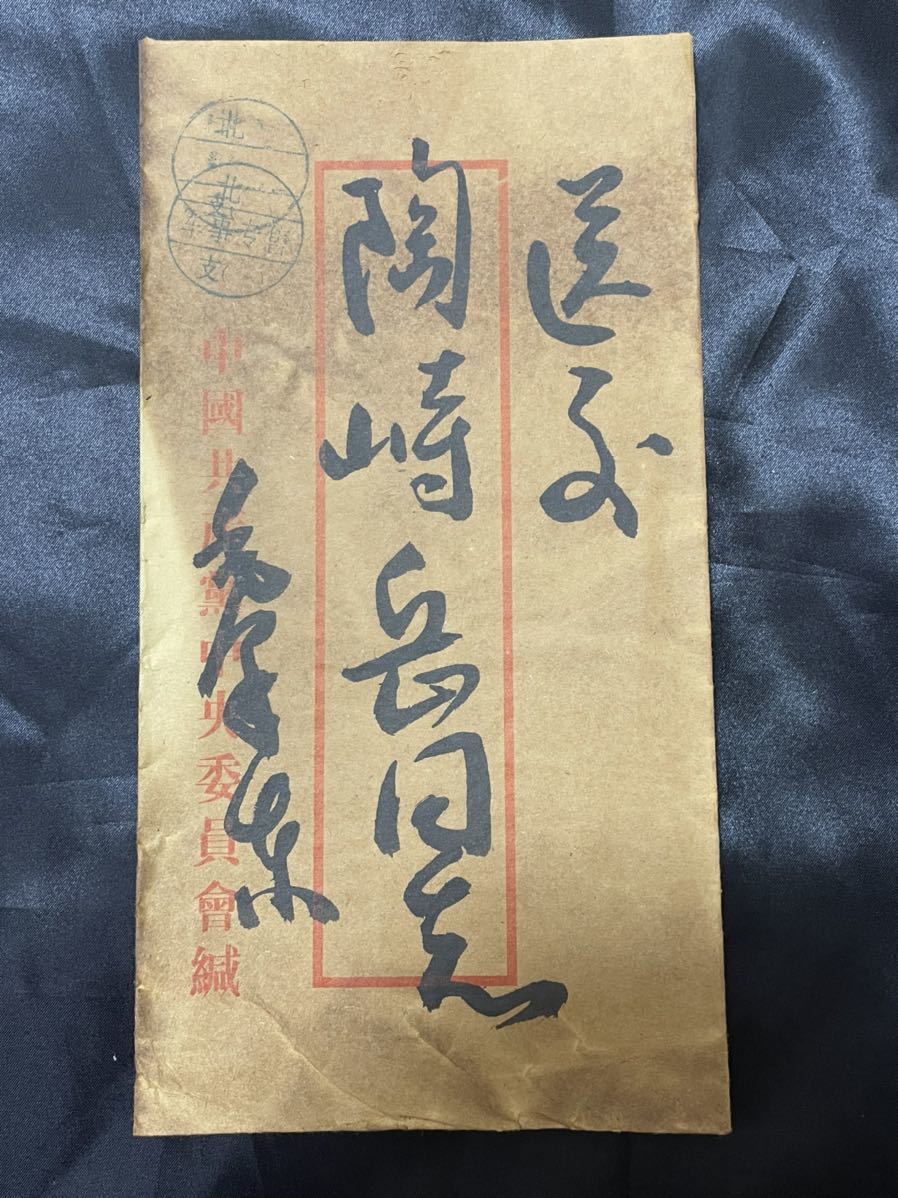 送交
陶峙岳同志
毛泽东
中國共产黨中央委員會緘
北
北
支